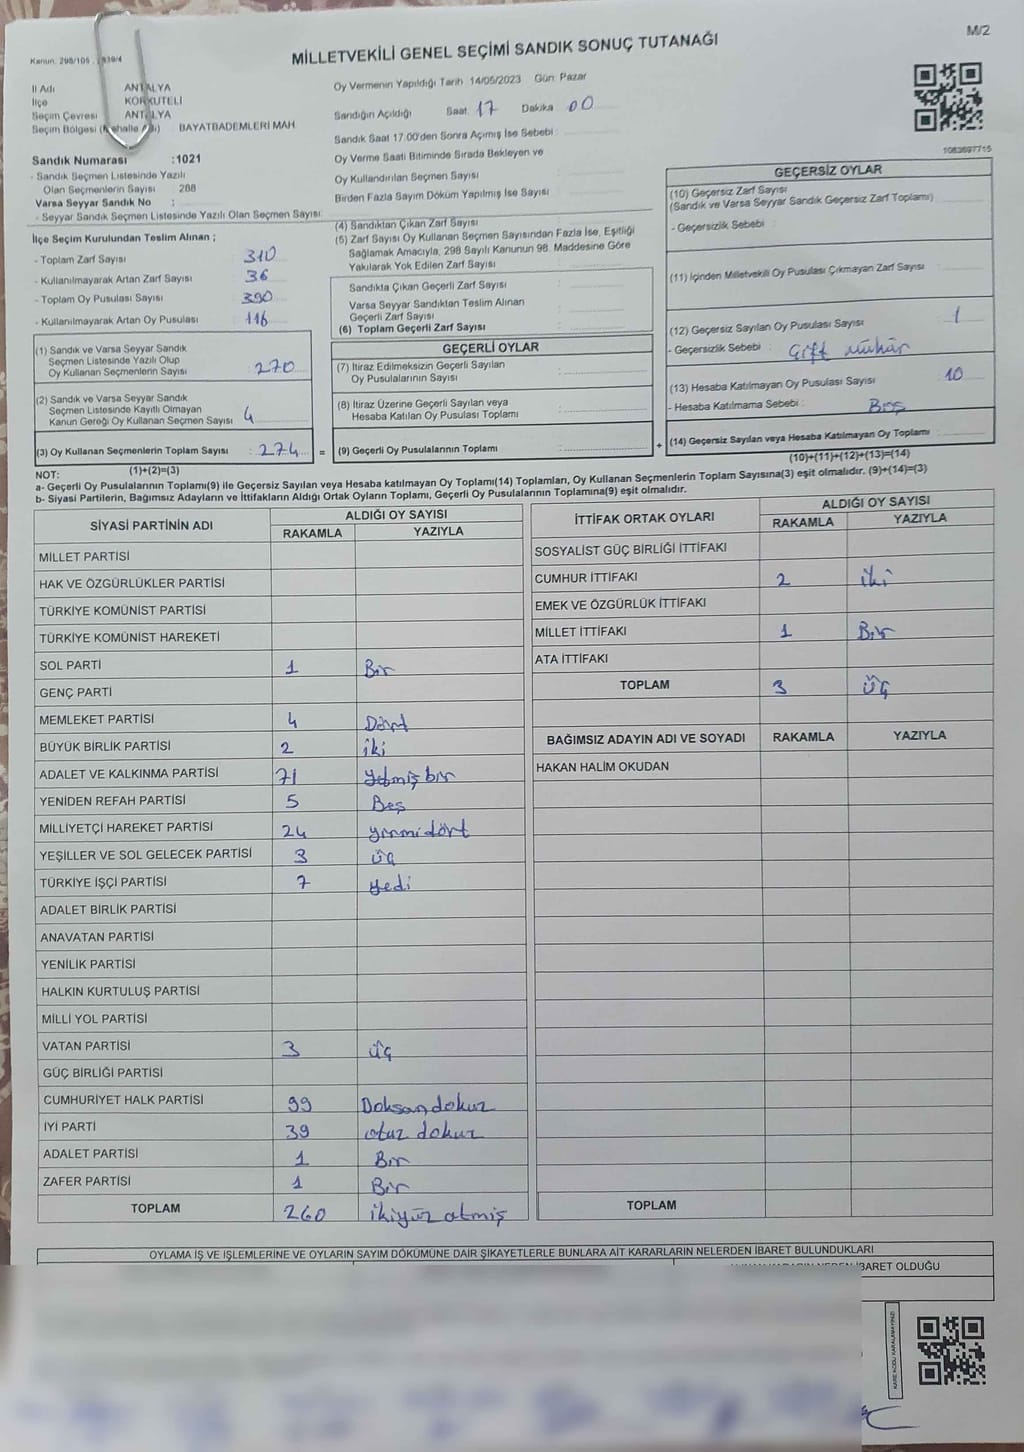 M/2
Kanun: 298/105
MİLLETVEKİLİ GENEL SEÇİMİ SANDIK SONUÇ TUTANAĞI
İl Adı ANTALYA
İlçe KORKUTELİ
Seçim Çevresi ANTALYA
Seçim Bölgesi BAYATBADEMLERİ MAH.
Oy Vermenin Yapıldığı Tarih: 14/05/2023 Gün: Pazar
Sandığın Açıldığı Saat: 17 Dakika: 00
Sandık Saat 17.00'den Sonra Açımış İse Sebebi :
Oy Verme Saati Bitiminde Sırada Bekleyen ve
Oy Kullandırılan Seçmen Sayısı
Birden Fazla Sayım Döküm Yapılmış İse Sayısı
1083697715
Sandık Numarası : 1021
- Sandık Seçmen Listesinde Yazılı
Olan Seçmenlerin Sayısı : 288
Varsa Seyyar Sandık No :
- Seyyar Sandık Seçmen Listesinde Yazılı Olan Seçmen Sayısı:
İlçe Seçim Kurulundan Teslim Alınan ;
- Toplam Zarf Sayısı 310
- Kullanılmayarak Artan Zarf Sayısı 36
- Toplam Oy Pusulası Sayısı 390
- Kullanılmayarak Artan Oy Pusulası 116
(1) Sandık ve Varsa Seyyar Sandık
Seçmen Listesinde Yazılı Olup
Oy Kullanan Seçmenlerin Sayısı : 270
(2) Sandık ve Varsa Seyyar Sandık
Seçmen Listesinde Kayıtlı Olmayan
Kanun Gereği Oy Kullanan Seçmen Sayısı 4
(3) Oy Kullanan Seçmenlerin Toplam Sayısı : 274 =
(1)+(2)=(3)
(4) Sandıktan Çıkan Zarf Sayısı
(5) Zarf Sayısı Oy Kullanan Seçmen Sayısından Fazla İse, Eşitliği
Sağlamak Amacıyla, 298 Sayılı Kanunun 98. Maddesine Göre
Yakılarak Yok Edilen Zarf Sayısı
Sandıkta Çıkan Geçerli Zarf Sayısı
Varsa Seyyar Sandıktan Teslim Alınan
Geçerli Zarf Sayısı
(6) Toplam Geçerli Zarf Sayısı
GEÇERLİ OYLAR
(7) İtiraz Edilmeksizin Geçerli Sayılan
Oy Pusulalarının Sayısı
(8) İtiraz Üzerine Geçerli Sayılan veya
Hesaba Katılan Oy Pusulası Toplamı
(9) Geçerli Oy Pusulalarının Toplamı +
GEÇERSİZ OYLAR
(10) Geçersiz Zarf Sayısı
(Sandık ve Varsa Seyyar Sandık Geçersiz Zarf Toplamı)
- Geçersizlik Sebebi :
(11) İçinden Milletvekili Oy Pusulası Çıkmayan Zarf Sayısı :
(12) Geçersiz Sayılan Oy Pusulası Sayısı : 1
- Geçersizlik Sebebi : Çift mühür
(13) Hesaba Katılmayan Oy Pusulası Sayısı 10
- Hesaba Katılmama Sebebi : Boş
(14) Geçersiz Sayılan veya Hesaba Katılmayan Oy Toplamı :
(10)+(11)+(12)+(13)=(14)
NOT:
a- Geçerli Oy Pusulalarının Toplamı(9) ile Geçersiz Sayılan veya Hesaba katılmayan Oy Toplam(14) Toplamları, Oy Kullanan Seçmenlerin Toplam Sayısına(3) eşit olmalıdır. (9)+(14)=(3)
b- Siyasi Partilerin, Bağımsız Adayların ve İttifakların Aldığı Ortak Oyların Toplamı, Geçerli Oy Pusulalarının Toplamına(9) eşit olmalıdır.
SİYASİ PARTİNİN ADI ALDIĞI OY SAYISI
RAKAMLA YAZIYLA
MİLLET PARTİSİ
HAK VE ÖZGÜRLÜKLER PARTİSİ
TÜRKİYE KOMÜNİST PARTİSİ
TÜRKİYE KOMÜNİST HAREKETİ
SOL PARTİ 1 Bir
GENÇ PARTİ
MEMLEKET PARTİSİ 4 Dört
BÜYÜK BİRLİK PARTİSİ 2 iki
ADALET VE KALKINMA PARTİSİ 71 yetmiş bir
YENİDEN REFAH PARTİSİ 5 Beş
MİLLİYETÇİ HAREKET PARTİSİ 24 yirmidört
YEŞİLLER VE SOL GELECEK PARTİSİ 3 üç
TÜRKİYE İŞÇİ PARTİSİ 7 yedi
ADALET BİRLİK PARTİSİ
ANAVATAN PARTİSİ
YENİLİK PARTİSİ
HALKIN KURTULUŞ PARTİSİ
MİLLİ YOL PARTİSİ
VATAN PARTİSİ 3 üç
GÜÇ BİRLİĞİ PARTİSİ
CUMHURİYET HALK PARTİSİ 99 Doksan dokuz
İYİ PARTİ 39 otuz dokuz
ADALET PARTİSİ 1 Bir
ZAFER PARTİSİ 1 Bir
TOPLAM 260 ikiyüz atmış
İTTİFAK ORTAK OYLARI ALDIĞI OY SAYISI
RAKAMLA YAZIYLA
SOSYALİST GÜÇ BİRLİĞİ İTTİFAKI
CUMHUR İTTİFAKI 2 iki
EMEK VE ÖZGÜRLÜK İTTİFAKI
MİLLET İTTİFAKI 1 Bir
ATA İTTİFAKI
TOPLAM 3 üç
BAĞIMSIZ ADAYIN ADI VE SOYADI RAKAMLA YAZIYLA
HAKAN HALİM OKUDAN
TOPLAM
OYLAMA İŞ VE İŞLEMLERİNE VE OYLARIN SAYIM DÖKÜMÜNE DAİR ŞİKAYETLERLE BUNLARA AİT KARARLARIN NELERDEN İBARET BULUNDUKLARI
İBARET OLDUĞU
KARE KODU KARALAMAYINIZ!